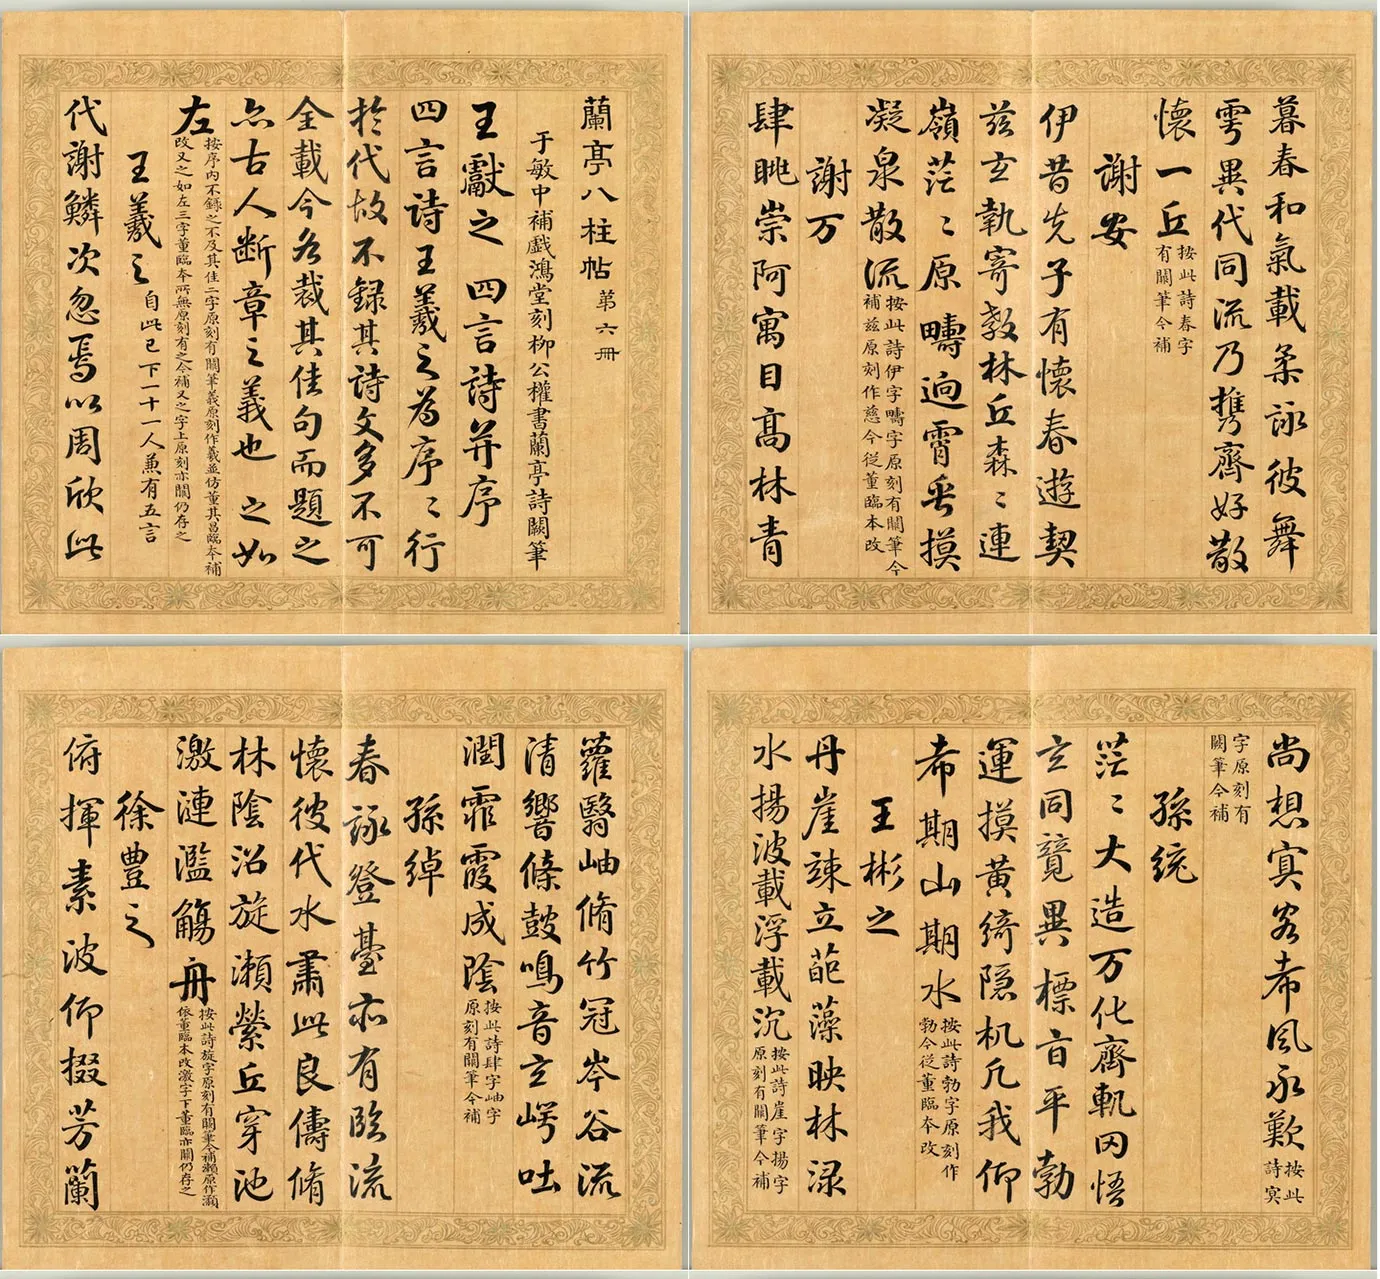 蘭亭八柱帖第六冊
于敏中補戲鴻堂刻柳公權書蘭亭詩闕筆
王獻之四言詩并序
四言詩王羲之為序〻行
於代故不録其詩文多不可
全載今各裁其佳句而題之
亦古人斷章之義也之如
左
按序内不錄之不及其佳二字原刻有闕筆義原刻作羲並仿董其昌臨本補
改又之如左三字董臨本所無原刻有之今補又之字上原刻亦闕仍存之
王羲之自此已下一十一人兼有五言
代謝鱗次忽焉以周欣此
暮春和氣載柔詠彼舞
雩異代同流乃攜齊好散
懷一丘
按此詩春字
有闕筆今補
謝安
伊昔先子有懷春遊契
茲玄執寄敖林丘森〻連
嶺茫〻原疇逈霄垂摸
凝泉散流
按此詩伊字疇字原刻有闕筆今
補茲原刻作慈今從董臨本改
謝万
肆眺崇阿寓目高林青
蘿翳岫脩竹冠岑谷流
清響條鼓鳴音玄崿吐
潤霏霞成陰
按此詩肆字岫字
原刻有闕筆今補
孫綽
春詠登臺亦有臨流
懷彼代水肅此良儔脩
林陰沼旋瀨縈丘穿池
激漣濫觴舟
按此詩旋字原刻有闕筆今補瀨原作瀨
依董臨本改激字下董臨亦闕仍存之
徐豊之
俯揮素波仰掇芳蘭
尚想冥客希風永歎
按此
詩冥
字原刻有
闕筆今補
孫統
茫〻大造万化齊軌罔悟
玄同競異標旨平勃
運摸黄綺隠机凡我仰
希期山期水
按此詩勃字原刻作
勃今從董臨本改
王彬之
丹崖竦立葩藻映林渌
水揚波載浮載沉
按此詩崖字揚字
原刻有闕筆今補